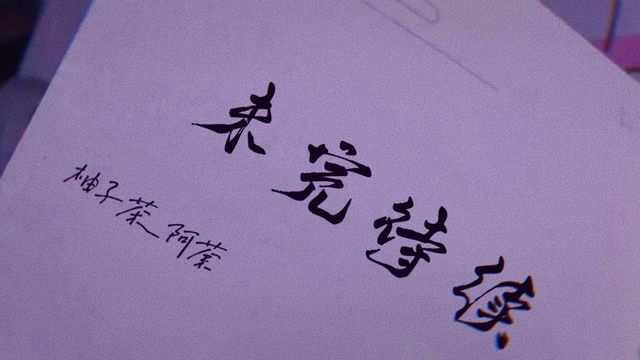 未完待续
柚子茶 阿茶